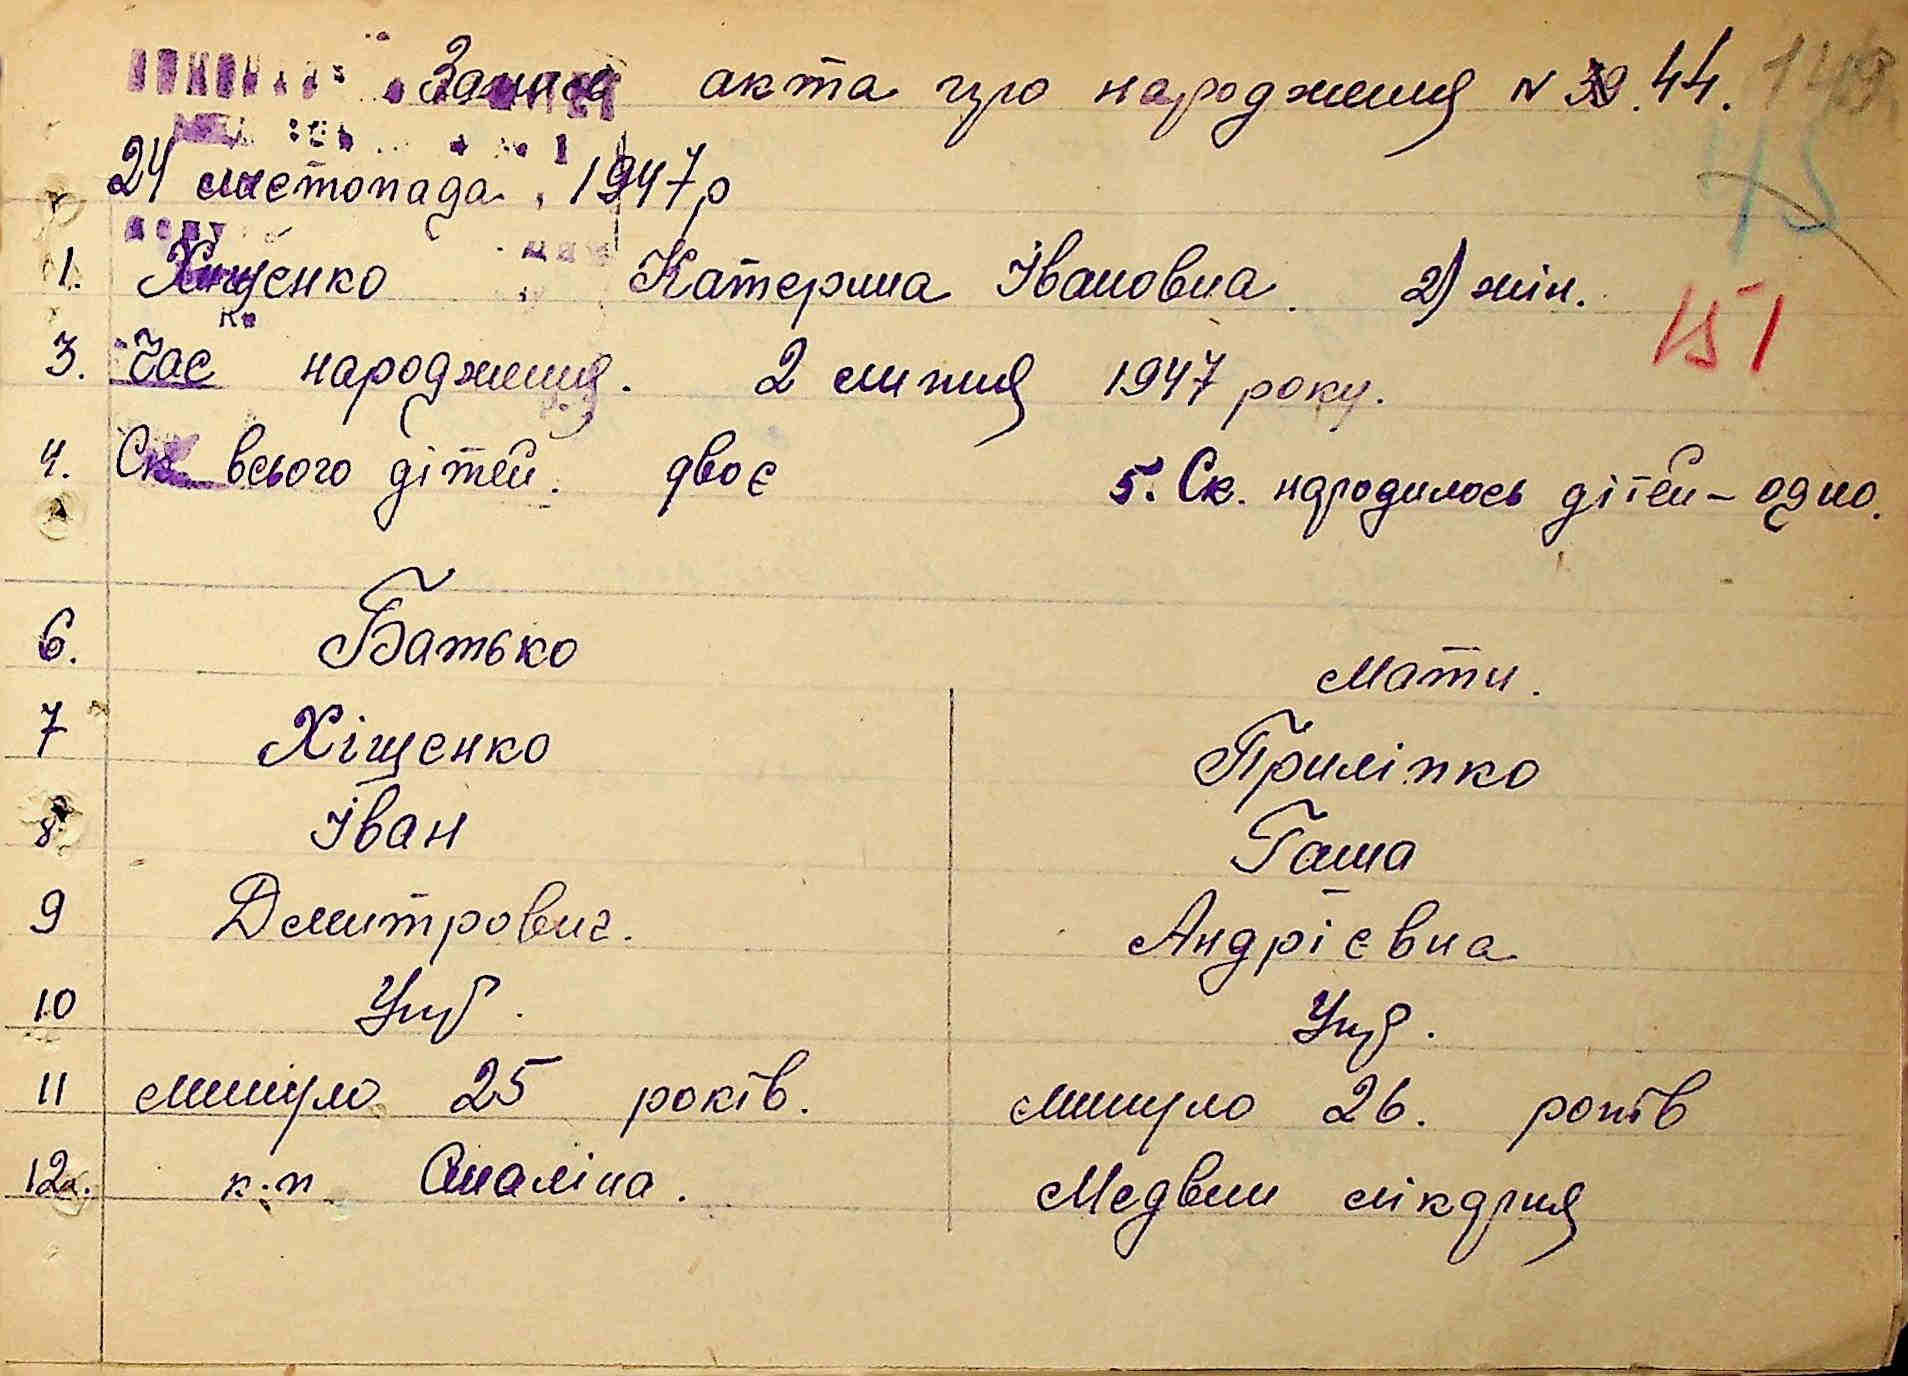 Запись акта про народження N 39. 44. 149
45
24 листопада 1947р
1. Хищенко Катерина Івановна. 2) жін.
151
3. Час народження. 2 липня 1947 року.
4. Ск всього дітей. двоє 5. Ск. народилось дітей – одно.
6. Батько Мати.
7 Хіщенко Приліпко
8. Іван Гаша
9 Дмитрович. Андрієвна
10 Укр. Укр.
11 минуло 25 років. минуло 26. років
12а. к.п. Медвин лікарня